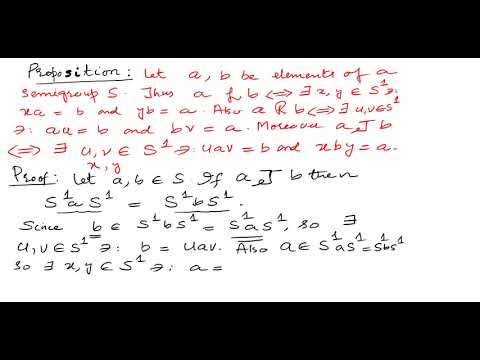 Proposition: Let a, b be elements of a
semigroup S. Thus a L b <=> ∃ x, y ∈ S¹ ∋:
xa = b and yb = a. Also a R b <=> ∃ u, v ∈ S¹
∋: au = b and bv = a. Moreover a J b
<=> ∃ u, v ∈ S¹ ∋: uav = b and xby = a.
x, y
Proof: Let a, b ∈ S. If a J b then
S¹aS¹ = S¹bS¹.
Since b ∈ S¹bS¹ = S¹aS¹, so ∃
u, v ∈ S¹ ∋: b = uav. Also a ∈ S¹aS¹ = S¹bS¹
so ∃ x, y ∈ S¹ ∋: a =